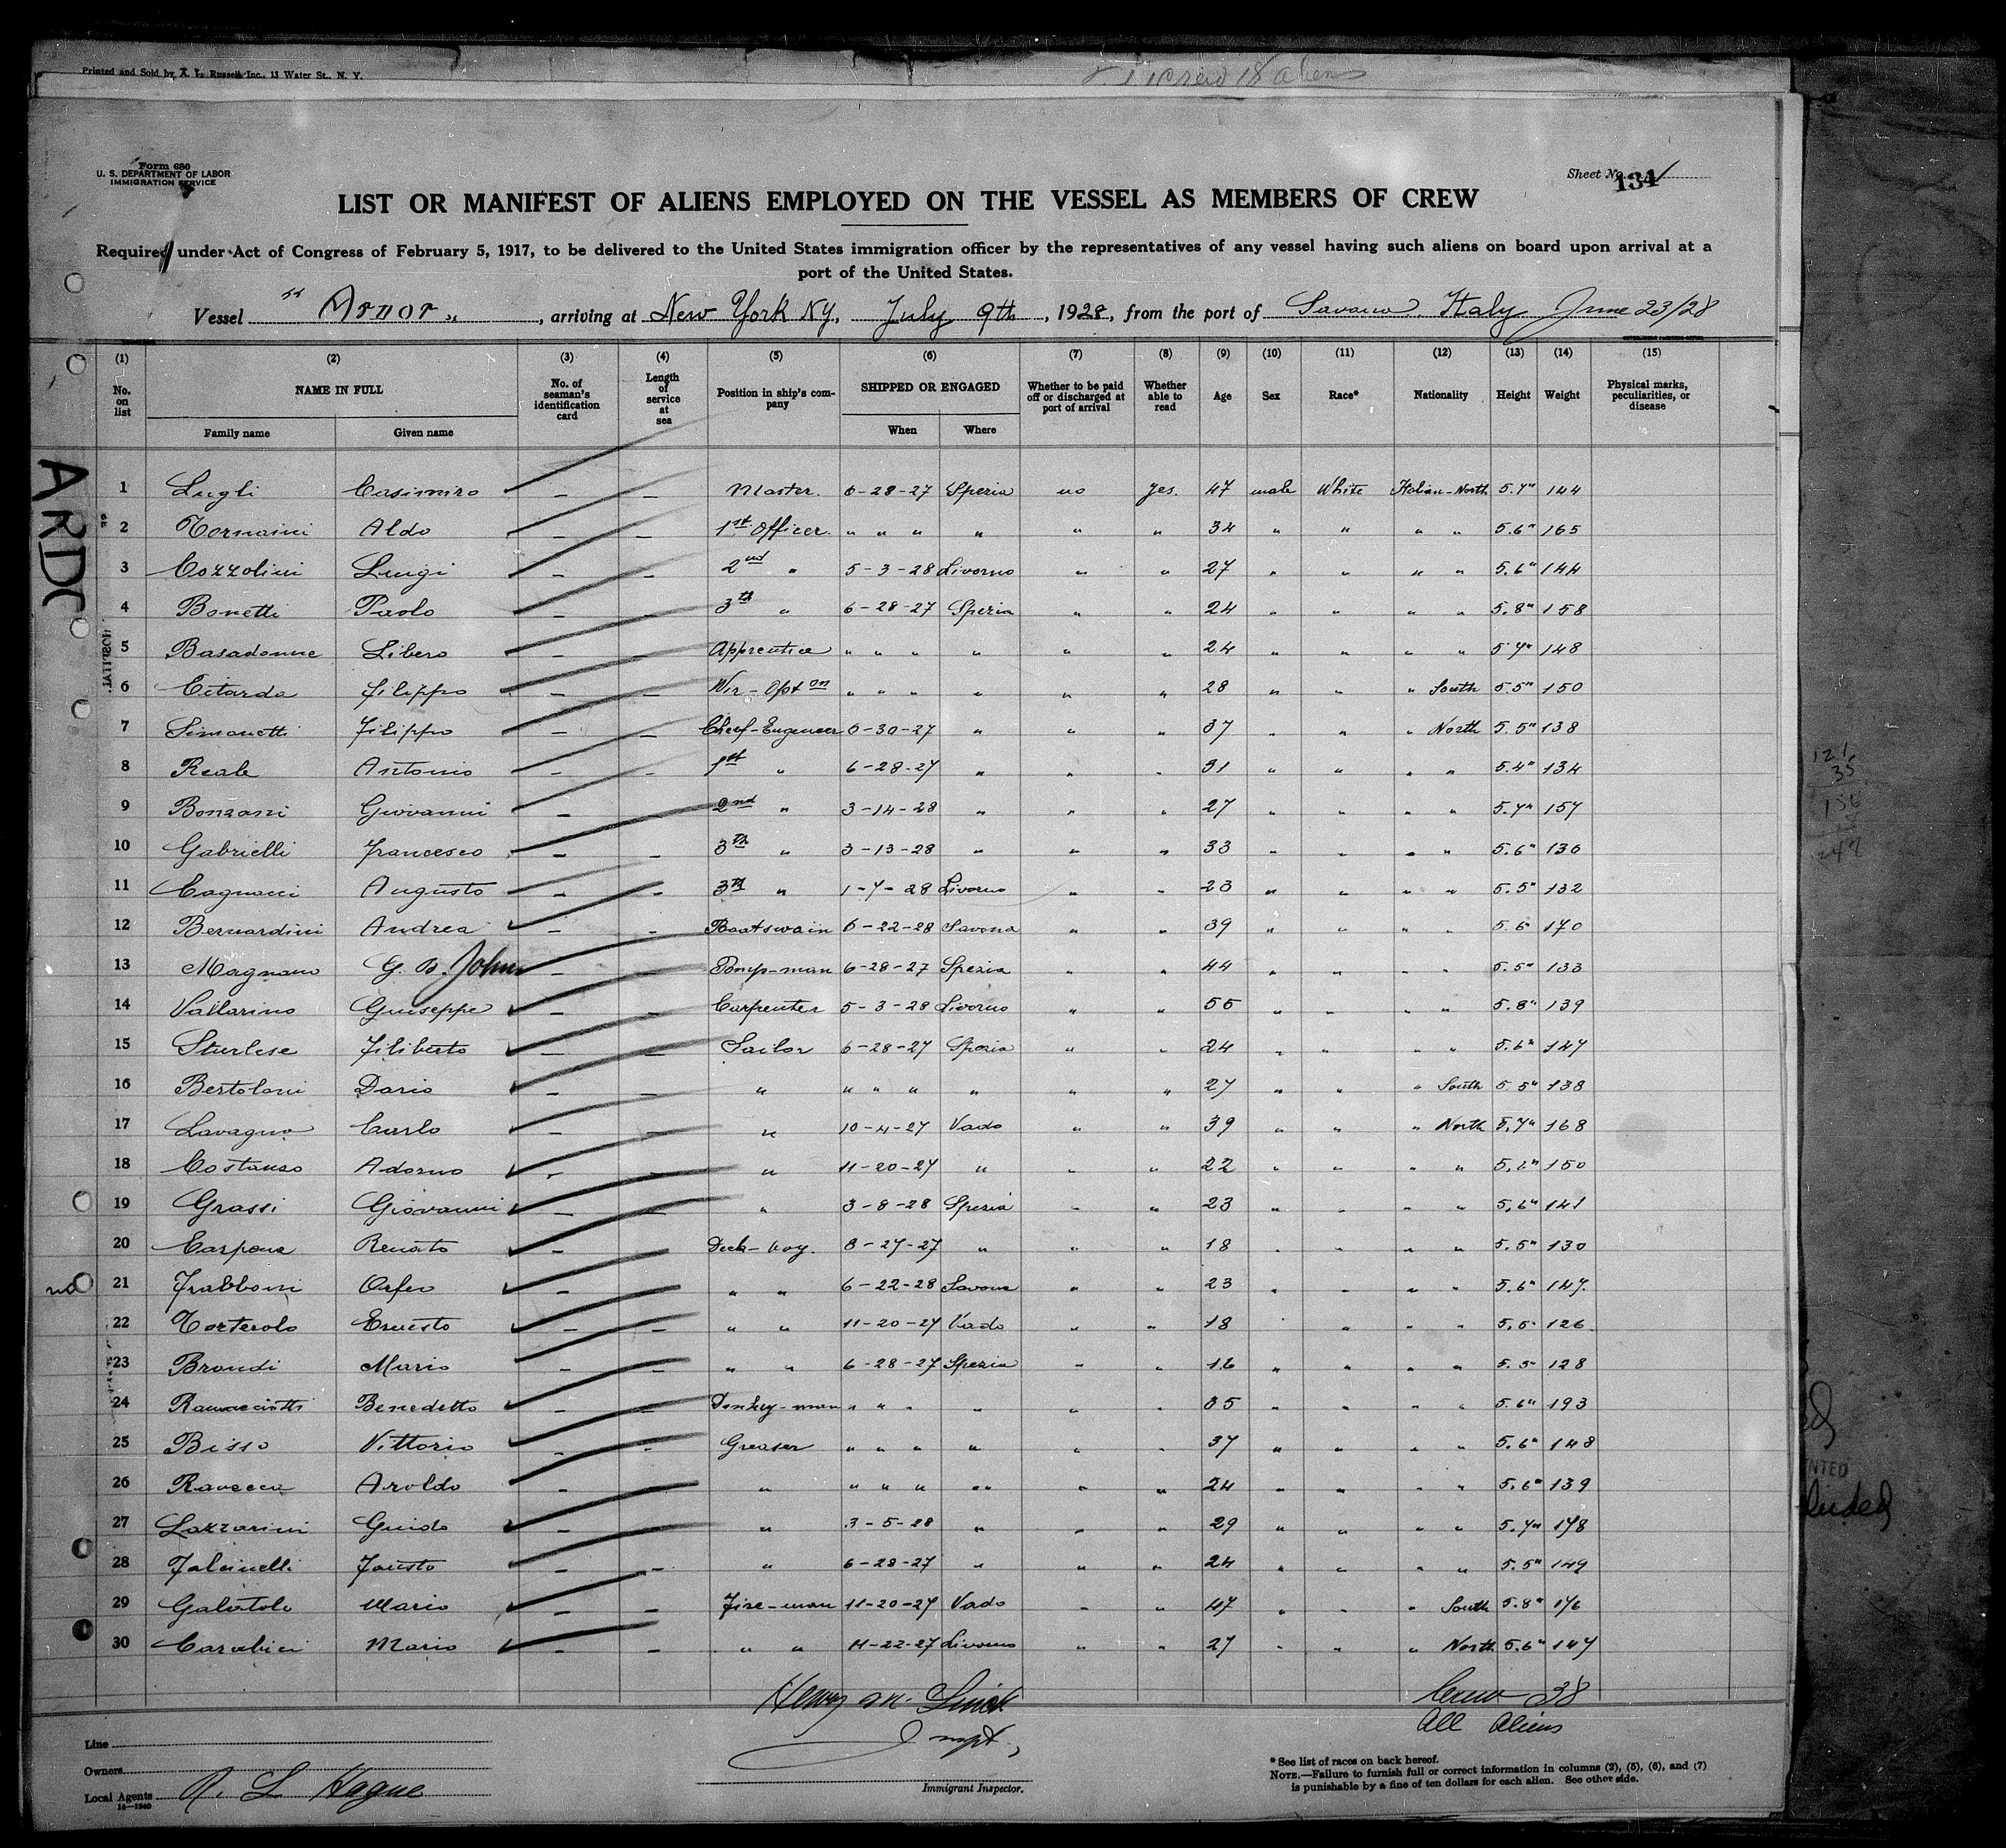 Printed and Sold by A. L. Russell Inc., 13 Water St., N. Y.
Form 680
U. S. DEPARTMENT OF LABOR
IMMIGRATION SERVICE
Sheet No. 134
LIST OR MANIFEST OF ALIENS EMPLOYED ON THE VESSEL AS MEMBERS OF CREW
Required under Act of Congress of February 5, 1917, to be delivered to the United States immigration officer by the representatives of any vessel having such aliens on board upon arrival at a
port of the United States.
Vessel , arriving at New York NY, July 9th, 1928, from the port of Savona Italy June 23/28
(1) (2) (3) (4) (5) (6) (7) (8) (9) (10) (11) (12) (13) (14) (15)
No. on list NAME IN FULL No. of seaman's identification card Length of service at sea Position in ship's company SHIPPED OR ENGAGED Whether to be paid off or discharged at port of arrival Whether able to read Age Sex Race* Nationality Height Weight Physical marks, peculiarities, or disease
Family name Given name When Where
1 Lugli Casimiro — — Master. 6-28-27 Spezia no yes. 47 male White Italian-North 5.7" 144
2 Tornaini Aldo — — 1st Officer. " " " " " " 34 " " " " 5.6" 165
3 Cozzolini Luigi — — 2nd " 5-3-28 Livorno " " 27 " " " " 5.6" 144
4 Bonetti Paolo — — 3th " 6-28-27 Spezia " " 24 " " " " 5.8" 158
5 Basadonne Libero — — Apprentice " " " " " " 24 " " " " 5.7" 148
6 Citarda Filippo — — " " " " " " 28 " " " South 5.5" 150
7 Simonetti Filippo — — Cheef-Engeneer 6-30-27 " " " 37 " " " North 5.5" 138
8 Reale Antonio — — 1st " 6-28-27 " " " 31 " " " " 5.4" 134
9 Bonzani Giovanni — — 2nd " 3-14-28 " " " 27 " " " " 5.7" 157
10 Gabrielli Francesco — — 3th " 3-13-28 " " " 33 " " " " 5.6" 136
11 Cagnacci Augusto — — 3th " 1-7-28 Livorno " " 23 " " " " 5.5" 132
12 Bernardini Andrea — — Boatswain 6-22-28 Savona " " 39 " " " " 5.6 170
13 Magnano G. B. John — — Pomp-man 6-28-27 Spezia " " 44 " " " " 5.5" 133
14 Vallarino Giuseppe — — Carpenter 5-3-28 Livorno " " 55 " " " " 5.8" 139
15 Sturlese Filiberto — — Sailor 6-28-27 Spezia " " 24 " " " " 5.6" 147
16 Bertoloni Dario — — " " " " " " " 27 " " " South 5.5" 138
17 Lavagno Carlo — — " 10-4-27 Vado " " 39 " " " North 5.7" 168
18 Costanso Adorno — — " 11-20-27 " " " 22 " " " " 5.6" 150
19 Grassi Giovanni — — " 3-8-28 Spezia " " 23 " " " " 5.6" 141
20 Carpena Renato — Deck-boy. 8-27-27 " " " 18 " " " " 5.5" 130
21 Frabboni Orfeo — " " 6-22-28 Savona " " 23 " " " " 5.6" 147.
22 Torterolo Ernesto — — " " 11-20-27 Vado " " 18 " " " 5.5" 126
23 Brondi Mario — — " " 6-28-27 Spezia " " 16 " " " " 5.5" 128
24 Ramacciotti Benedetto — — Donkey-man " " " " " " 35 " " " " 5.6" 193
25 Bisso Vittorio — — Greaser " " " " " " 37 " " " " 5.6" 148
26 Ravecca Aroldo — — " " " " " " " 24 " " " " 5.6" 139
27 Lazzarini Guido — — " 3-5-28 " " " 29 " " " " 5.7" 178
28 Falcinelli Fausto — — " 6-28-27 " " " 24 " " " " 5.5" 149
29 Galatolo Mario — — Fire-man 11-20-27 Vado " " 47 " " " South 5.8" 176
30 Carubici Mario — — " " 11-22-27 Livorno " " 27 " " " North 5.6" 147
Crew 38
All Aliens
Line
Owners
Local Agents R. L. Hague
14—1240
Immigrant Inspector.
* See list of races on back hereof.
NOTE.—Failure to furnish full or correct information in columns (2), (5), (6), and (7)
is punishable by a fine of ten dollars for each alien. See other side.